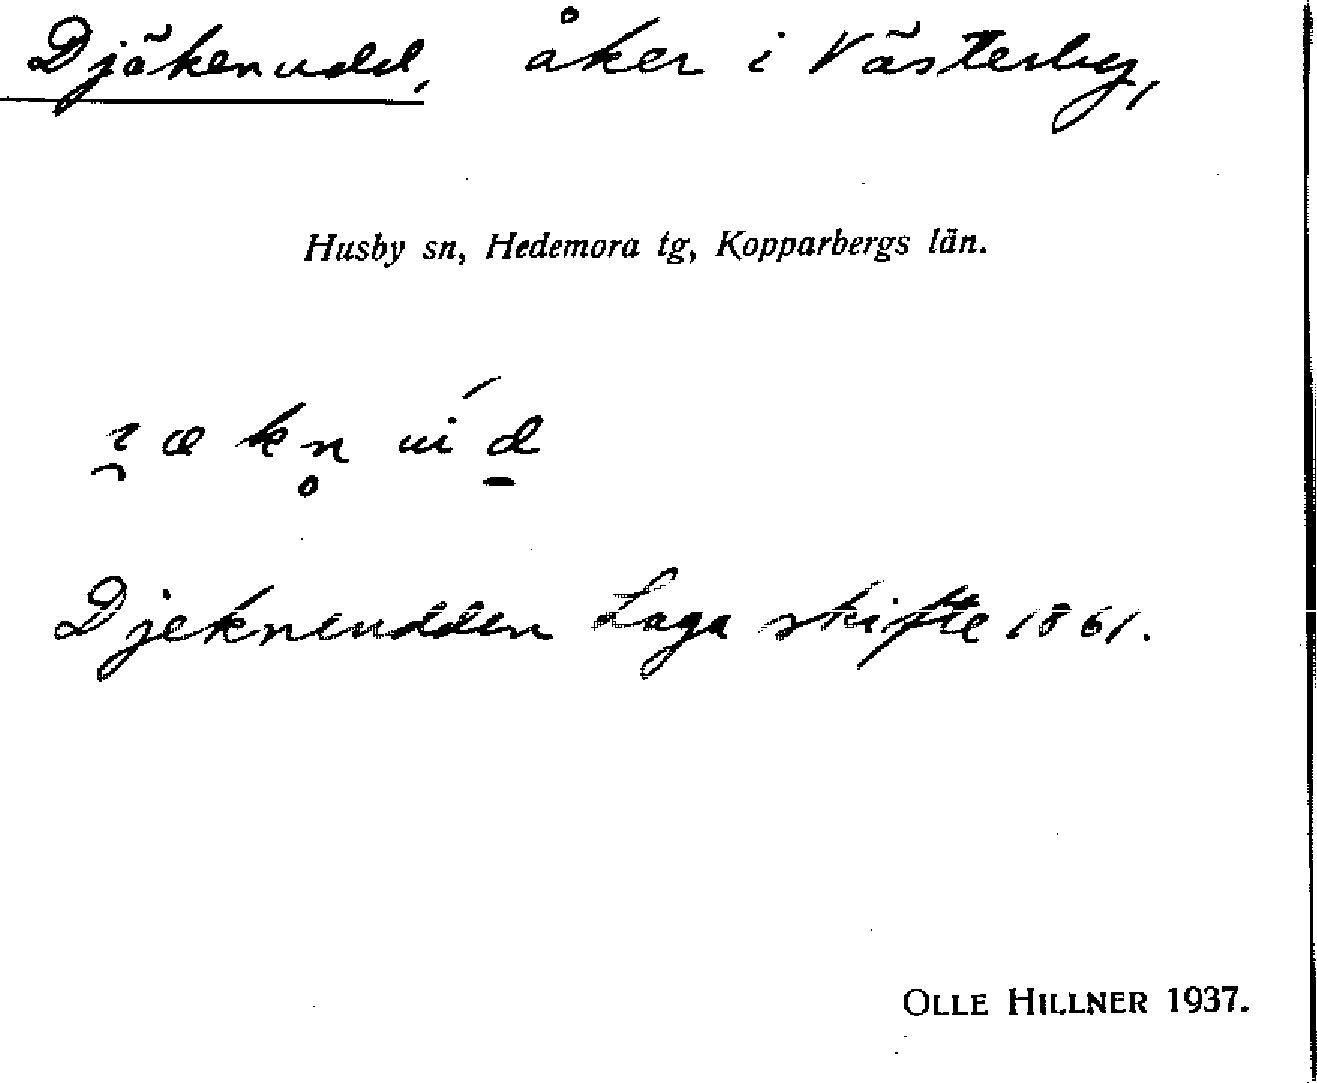 Djäkenudd, åker i Västerby,
Husby sn, Hedemora tg, Kopparbergs län.
Djekneudden Laga skifte 1861.
OLLE HILLNER 1937.